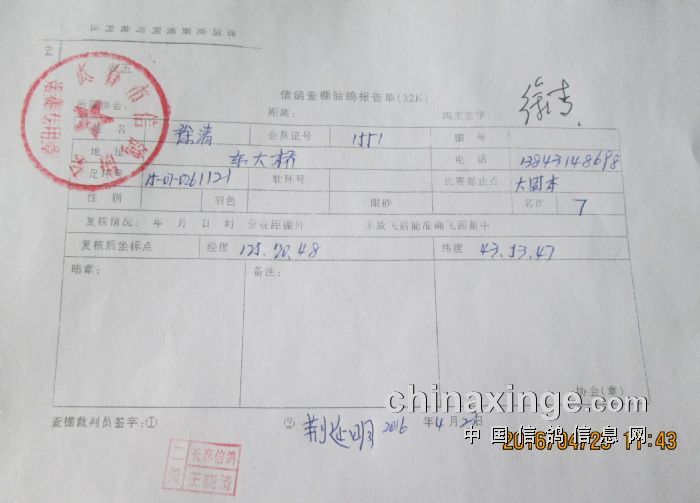 信鸽查棚验鸽报告单(32K)
所属协会: 距离: 鸽主签字:
长春市信鸽协会
姓名 徐清 会员证号 1551 棚号
地址 东大桥 电话 13843148698
足环号 15-07-0261121 软环号 比赛起止点 大固本
性别 羽色 眼砂 名次 7
复核情况: 年 月 日 时 分在距棚外 米放飞后能准确飞回巢中
复核后坐标点 经度 125.20.48 纬度 43.53.47
暗章: 备注:
协会(章)
查棚裁判员签字:① ② 荆延明 2016 年 4 月 23 日
chinaxinge.com
中国信鸽信息网
2016/04/23 11:43
二级 长春信鸽
王晓清